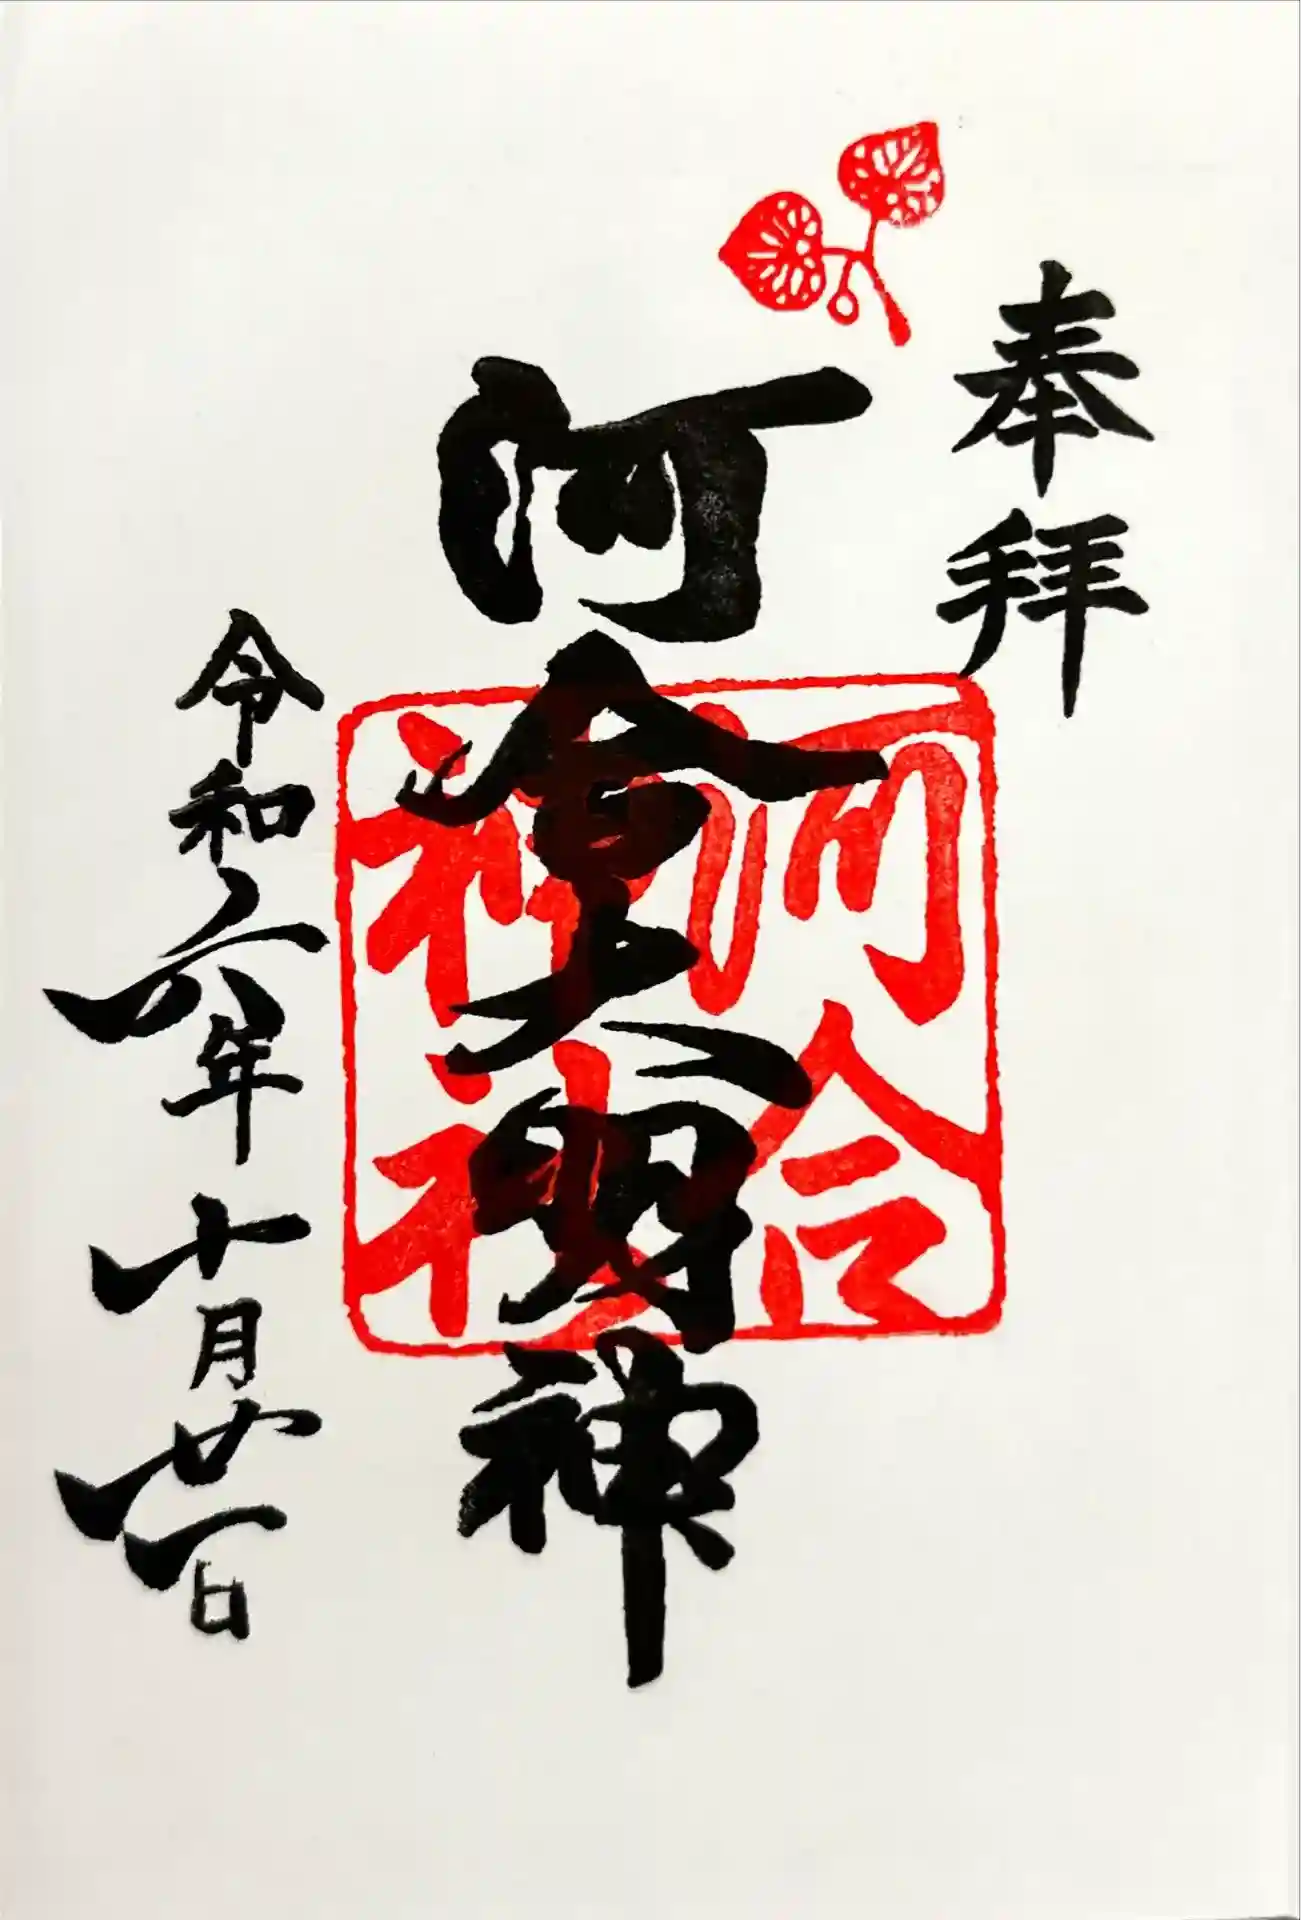 奉拝
河合大明神
河合
神社
令和六年十月廿一日